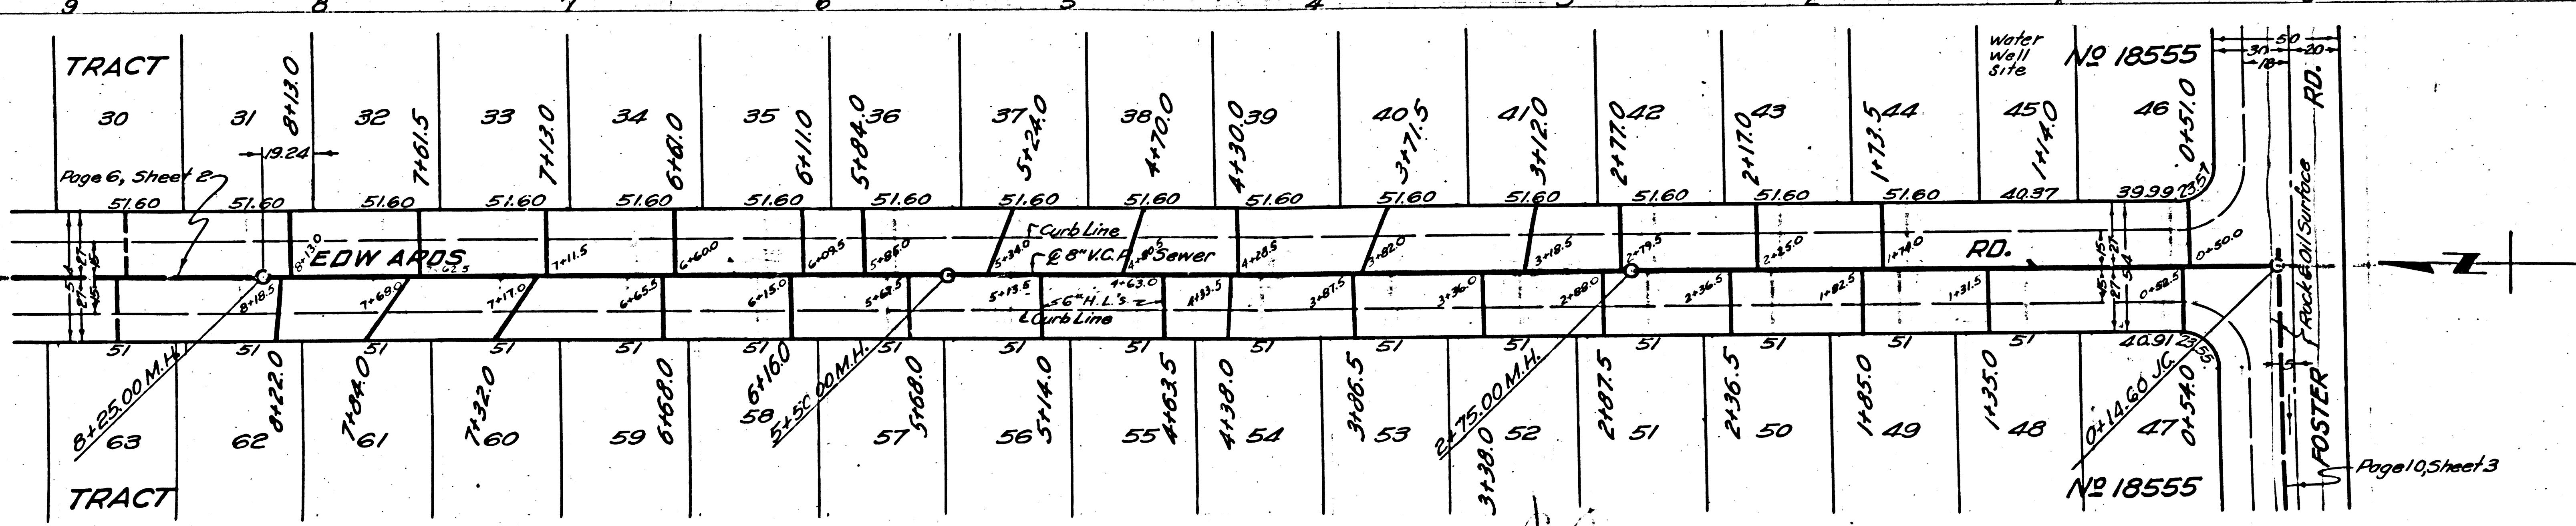 9 8 7 6 5 4 3
TRACT
Water
Well
Site
Nº 18555
50
30 20
18
30 31 32 33 34 35 36 37 38 39 40 41 42 43 44 45 46
8+13.0 7+61.5 7+13.0 6+61.0 6+11.0 5+84.0 5+24.0 4+70.0 4+30.0 3+71.5 3+12.0 2+77.0 2+17.0 1+73.5 1+14.0 0+51.0
19.24
Page 6, Sheet 2
51.60 51.60 51.60 51.60 51.60 51.60 51.60 51.60 51.60 51.60 51.60 51.60 51.60 51.60 51.60 40.37 39.99 23.57
Curb Line
8+13.0 62.5 7+11.5 6+60.0 6+09.5 5+85.0 5+34.0 4+28.5 3+82.0 3+18.5 2+79.5 2+25.0 1+74.0 0+50.0
EDWARDS
℄ 8" V.C.P. Sewer
RD.
54 27 27 15 15
15 15 27 27 54
8+18.5 7+69.0 7+17.0 6+65.5 6+15.0 5+67.5 5+13.5 4+63.0 4+33.5 3+87.5 3+36.0 2+88.0 2+36.5 1+82.5 1+31.5 0+52.5
6" H.L.'s
Curb Line
51 51 51 51 51 51 51 51 51 51 51 51 51 51 51 51 40.91 23.55
8+25.00 M.H.
5+50.00 M.H.
2+75.00 M.H.
0+14.60 J.C.
8+22.0 7+84.0 7+32.0 6+68.0 6+16.0 5+68.0 5+14.0 4+63.5 4+38.0 3+86.5 3+38.0 2+87.5 2+36.5 1+85.0 1+35.0 0+54.0
63 62 61 60 59 58 57 56 55 54 53 52 51 50 49 48 47
TRACT
Nº 18555
FOSTER RD.
Rock & Oil Surface
5
Page 10, Sheet 3